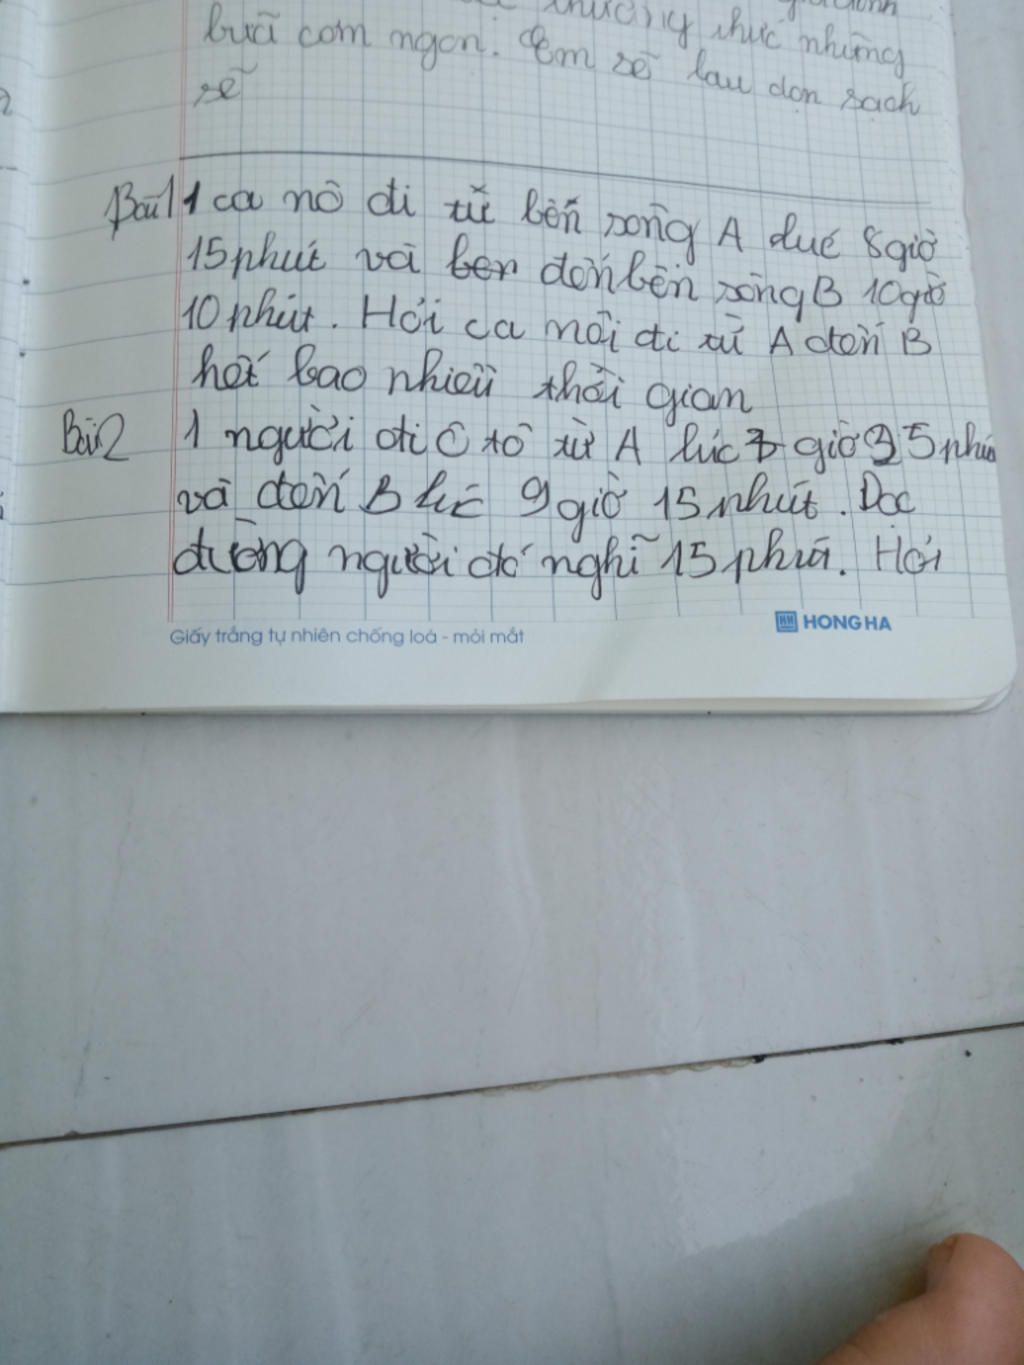 thưởng thức những
bữa cơm ngon. Em sẽ lau dọn sạch
sẽ
Bài 1 1 ca nô đi từ bến sông A lúc 8 giờ
15 phút và ben đến bến sông B 10 giờ
10 phút. Hỏi ca nôi đi từ A đến B
hết bao nhiêu thời gian
Bài 2 1 người đi ô tô từ A lúc 7 giờ 35 phút
và đến B lúc 9 giờ 15 phút. Dọc
đường người đó nghĩ 15 phút. Hỏi
Giấy trắng tự nhiên chống loá - mỏi mắt
HH HONG HA